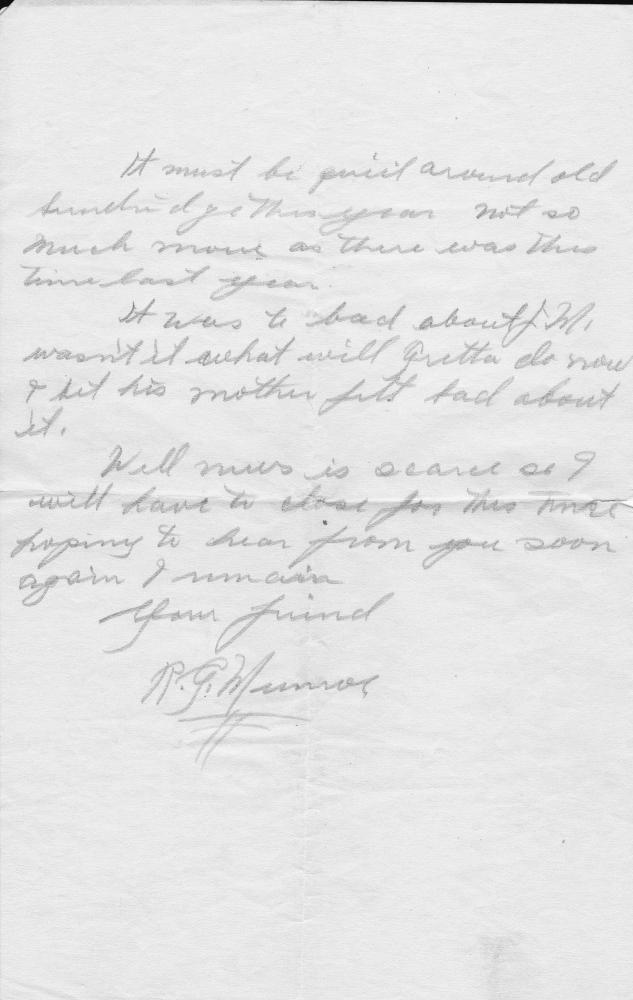 It must be quiit around old
Sundridge this year not so
much move as there was this
time last year.
It was to bad about J. M.
wasn't it what will Gretta do now
I bet his mother felt bad about
it.
Well news is scarce so I
will have to close for this time
hoping to hear from you soon
again I remain
Your friend
R. G. Munroe